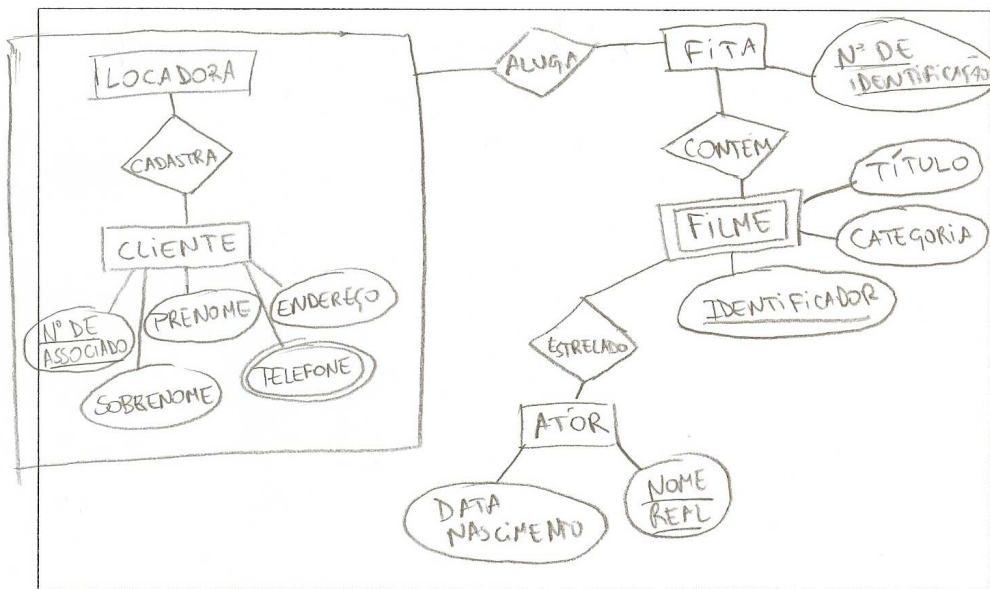 LOCADORA
CADASTRA
CLIENTE
Nº DE
ASSOCIADO
PRENOME
ENDEREÇO
SOBRENOME
TELEFONE
ALUGA
FITA
Nº DE
IDENTIFICAÇÃO
CONTÉM
FILME
TÍTULO
CATEGORIA
IDENTIFICADOR
ESTRELADO
ATÓR
DATA
NASCIMENTO
NOME
REAL